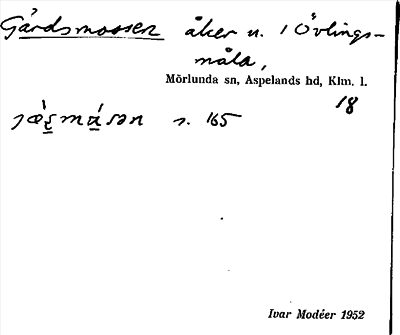 Gårdsmossen åker u. 1 Övlings-
måla,
Mörlunda sn, Aspelands hd, Klm. l.
18
s. 165
Ivar Modéer 1952